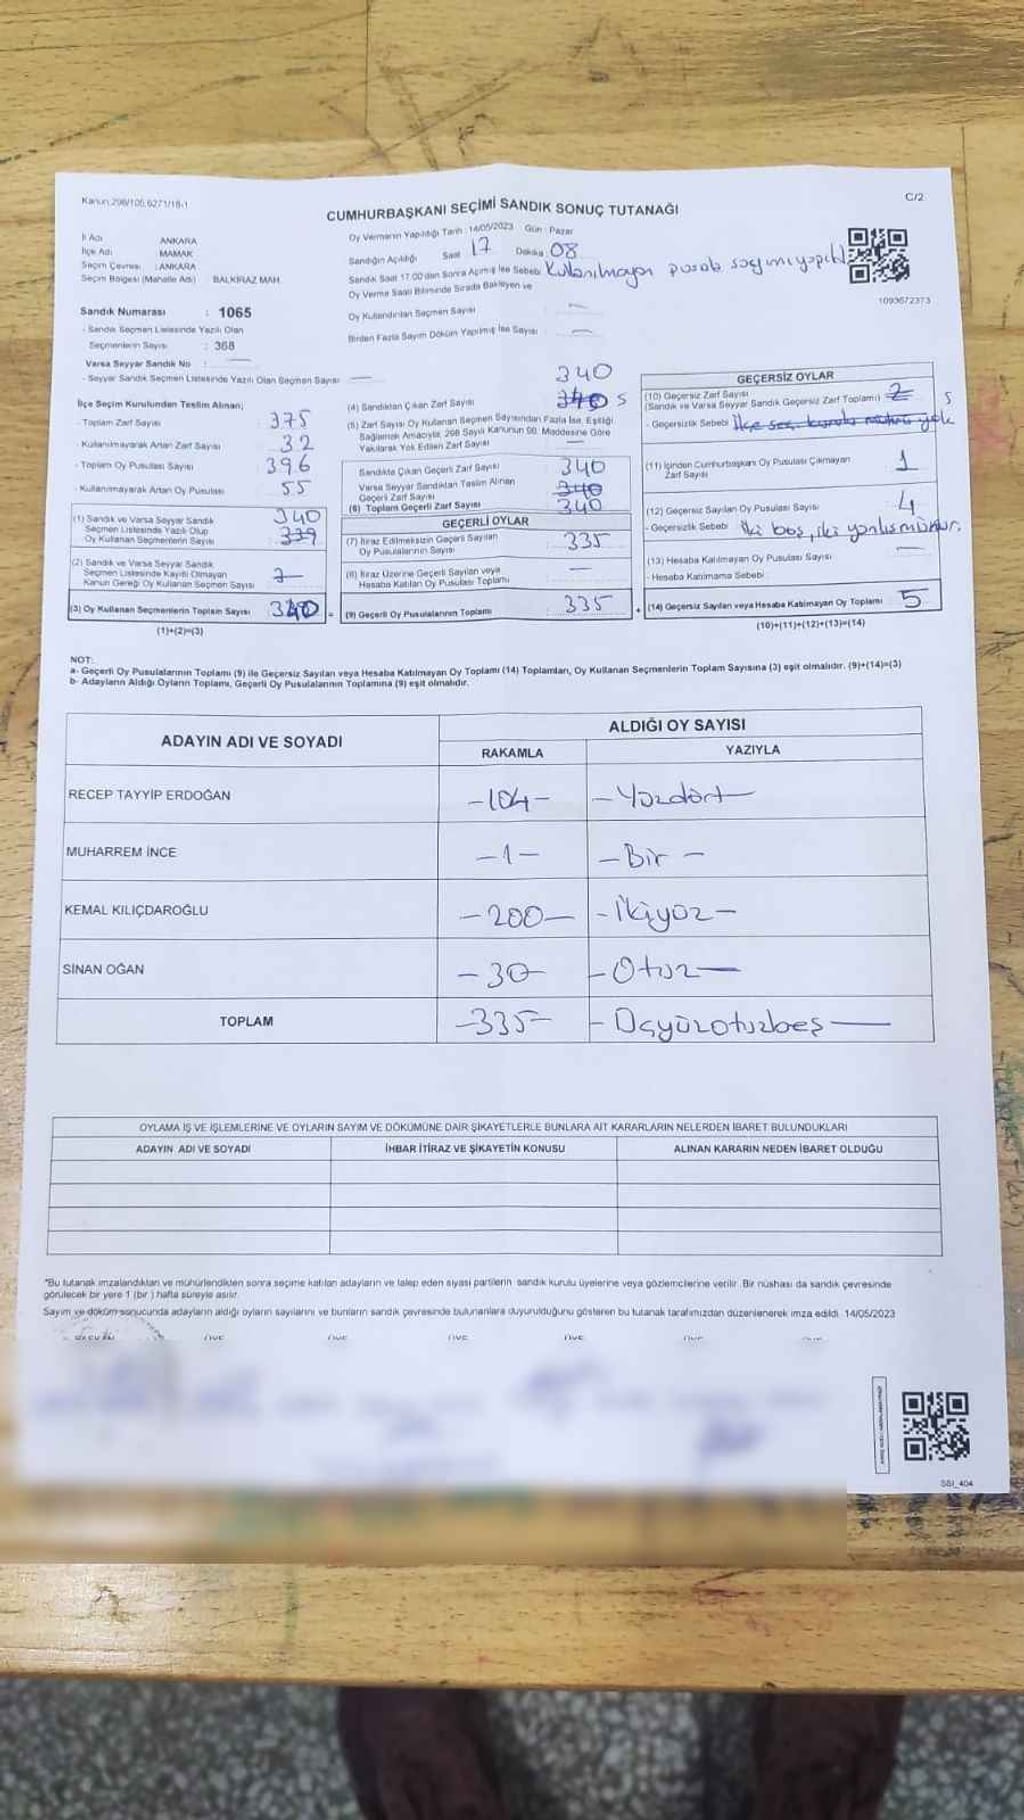 Kanun:298/105,6271/18-1
C/2
CUMHURBAŞKANI SEÇİMİ SANDIK SONUÇ TUTANAĞI
İl Adı ANKARA
İlçe Adı MAMAK
Seçim Çevresi : ANKARA
Seçim Bölgesi (Mahalle Adı) BALKİRAZ MAH.
Sandık Numarası : 1065
- Sandık Seçmen Listesinde Yazılı Olan
Seçmenlerin Sayısı : 368
Varsa Seyyar Sandık No : —
- Seyyar Sandık Seçmen Listesinde Yazılı Olan Seçmen Sayısı —
Oy Vermenin Yapıldığı Tarih : 14/05/2023 Gün : Pazar
Sandığın Açıldığı Saat 17 Dakika : 08
Sandık Saat 17.00'den Sonra Açılmış İse Sebebi Kullanılmayan pusula sayımı yapıldı
Oy Verme Saati Bitiminde Sırada Bekleyen ve
Oy Kullandırılan Seçmen Sayısı —
Birden Fazla Sayım Döküm Yapılmış İse Sayısı —
1093672373
İlçe Seçim Kurulundan Teslim Alınan;
- Toplam Zarf Sayısı 375
- Kullanılmayarak Artan Zarf Sayısı 32
- Toplam Oy Pusulası Sayısı 396
- Kullanılmayarak Artan Oy Pusulası 55
(1) Sandık ve Varsa Seyyar Sandık 340
Seçmen Listesinde Yazılı Olup
Oy Kullanan Seçmenlerin Sayısı 339
(2) Sandık ve Varsa Seyyar Sandık
Seçmen Listesinde Kayıtlı Olmayan
Kanun Gereği Oy Kullanan Seçmen Sayısı
(3) Oy Kullanan Seçmenlerin Toplam Sayısı 340 =
(1)+(2)=(3)
340
(4) Sandıktan Çıkan Zarf Sayısı 340 5
(5) Zarf Sayısı Oy Kullanan Seçmen Sayısından Fazla İse, Eşitliği
Sağlamak Amacıyla, 298 Sayılı Kanunun 98. Maddesine Göre
Yakılarak Yok Edilen Zarf Sayısı —
Sandıkta Çıkan Geçerli Zarf Sayısı 340
Varsa Seyyar Sandıktan Teslim Alınan
Geçerli Zarf Sayısı 340
(6) Toplam Geçerli Zarf Sayısı 340
GEÇERLİ OYLAR
(7) İtiraz Edilmeksizin Geçerli Sayılan
Oy Pusulalarının Sayısı 335
(8) İtiraz Üzerine Geçerli Sayılan veya
Hesaba Katılan Oy Pusulası Toplamı —
(9) Geçerli Oy Pusulalarının Toplamı 335 +
GEÇERSİZ OYLAR
(10) Geçersiz Zarf Sayısı
(Sandık ve Varsa Seyyar Sandık Geçersiz Zarf Toplamı) 2 5
- Geçersizlik Sebebi İlçe seç. kurulu mührü yok
(11) İçinden Cumhurbaşkanı Oy Pusulası Çıkmayan
Zarf Sayısı 1
(12) Geçersiz Sayılan Oy Pusulası Sayısı 4
- Geçersizlik Sebebi İki boş, iki yanlış mühür.
(13) Hesaba Katılmayan Oy Pusulası Sayısı —
- Hesaba Katılmama Sebebi
(14) Geçersiz Sayılan veya Hesaba Katılmayan Oy Toplamı 5
(10)+(11)+(12)+(13)=(14)
NOT:
a- Geçerli Oy Pusulalarının Toplamı (9) ile Geçersiz Sayılan veya Hesaba Katılmayan Oy Toplamı (14) Toplamları, Oy Kullanan Seçmenlerin Toplam Sayısına (3) eşit olmalıdır. (9)+(14)=(3)
b- Adayların Aldığı Oyların Toplamı, Geçerli Oy Pusulalarının Toplamına (9) eşit olmalıdır.
ADAYIN ADI VE SOYADI
ALDIĞI OY SAYISI
RAKAMLA YAZIYLA
RECEP TAYYİP ERDOĞAN -104- -Yüzdört-
MUHARREM İNCE -1- -Bir-
KEMAL KILIÇDAROĞLU -200- -İkiyüz-
SİNAN OĞAN -30- -Otuz-
TOPLAM -335- -Üçyüzotuzbeş-
OYLAMA İŞ VE İŞLEMLERİNE VE OYLARIN SAYIM VE DÖKÜMÜNE DAİR ŞİKAYETLERLE BUNLARA AİT KARARLARIN NELERDEN İBARET BULUNDUKLARI
ADAYIN ADI VE SOYADI İHBAR İTİRAZ VE ŞİKAYETİN KONUSU ALINAN KARARIN NEDEN İBARET OLDUĞU
*Bu tutanak imzalandıktan ve mühürlendikten sonra seçime katılan adayların ve talep eden siyasi partilerin sandık kurulu üyelerine veya gözlemcilerine verilir. Bir nüshası da sandık çevresinde
görülecek bir yere 1 (bir ) hafta süreyle asılır.
Sayım ve döküm sonucunda adayların aldığı oyların sayılarını ve bunların sandık çevresinde bulunanlara duyurulduğunu gösteren bu tutanak tarafımızdan düzenlenerek imza edildi. 14/05/2023
SSI_404